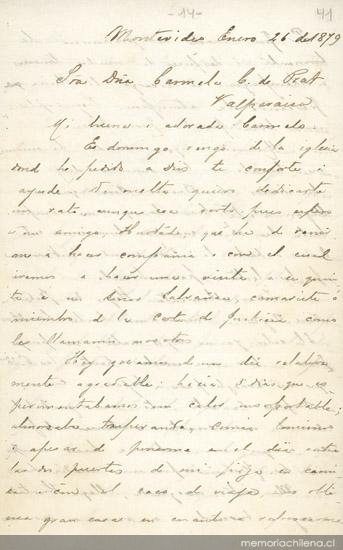 -14-
41
Montevideo Enero 26 de 1879
Sra Dña Carmela C. de Prat
Valparaiso
Mi buena i adorada Carmela
Es domingo, vengo de la iglesia
dond he pedido a Dios te conforte i
ayude. De vuelta quiero dedicarte
un rato, aunque sea corto pues espero
a mi amigo Hurtado que ha de venir
me a hacer compañia i con el cual
iremos a hacer una visita a la quin
ta de un Señor camarista o
miembro de la corte de Justicia como
le llamamos nosotros
Hoy gozamos de un dia relativa
mente agradable; hacia dias que es
perimentabamos un calor insoportable;
almorzaba traspirando, comia lo mismo
i apesar de ponerme en el dia entre
las dos puertas de mi pieza en cami
sa i con el saco de viaje
una gran cosa en cuanto a refrescarme
memoriachilena.cl